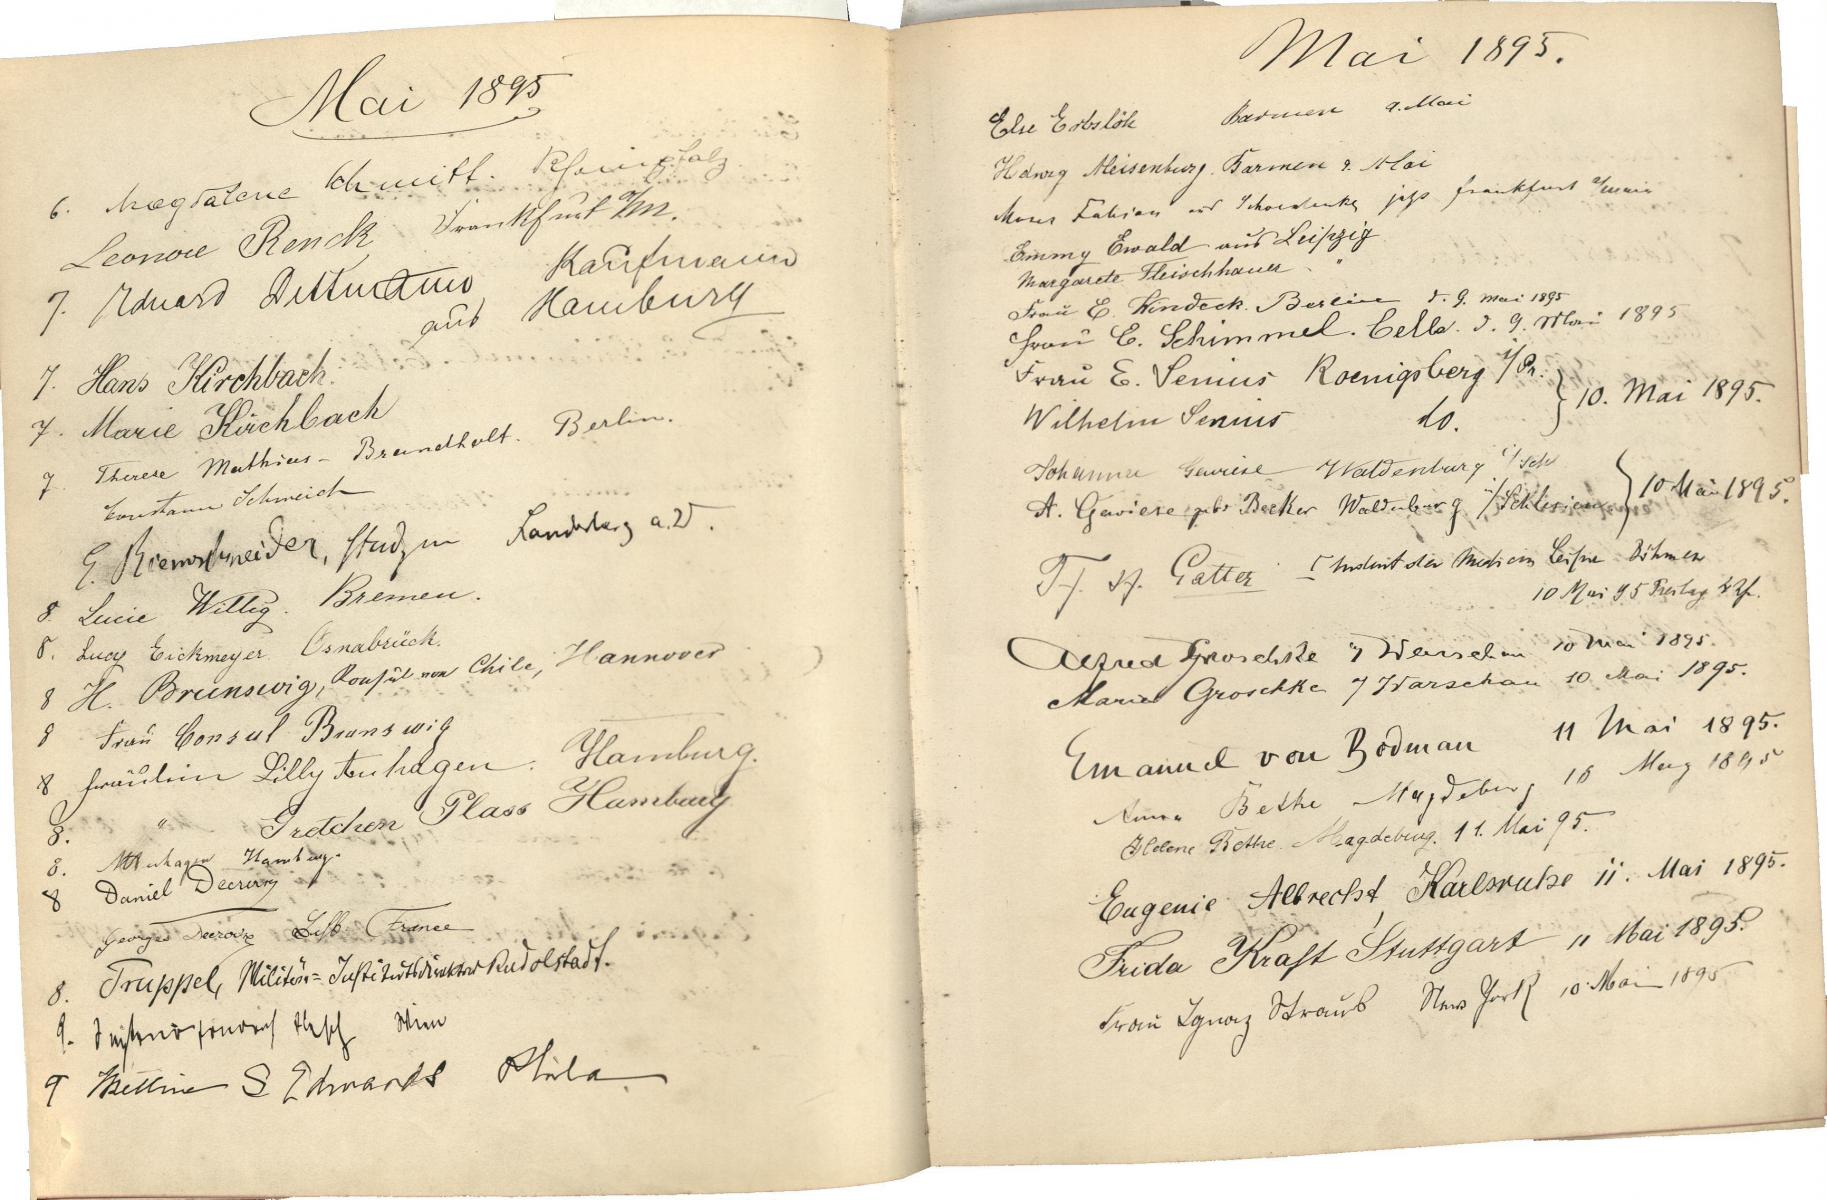 Mai 1895
6. Magdalene Schmitt. Rheinpfalz
Leonore Renck, Frankfurt a/M.
7. Eduard Kaufmann
aus Hamburg
7. Hans Kirchbach.
7. Marie Kirchbach
7 Therese Mathias - Brandholt. Berlin.
Constanze Schmeich
E. Riemschneider, Landsberg a. W.
8 Lucie Willig. Bremen.
8. Lucy Eickmeyer Osnabrück.
8 H. Brunswig, Konsul von Chile, Hannover
8 Frau Consul Brunswig
8 Fräulein Lilly Anhagen. Hamburg.
8. " Gretchen Plass Hamburg
8. Anhagen Hamburg.
8 Daniel
Georges France
8. Truppel, Militär-Institutsdirektor Rudolstadt.
9. Wien
9 Bettina S Edwards Phila
Mai 1895.
Else Erbslöh Barmen 9. Mai
Hedwig Meisenburg. Barmen 9. Mai
Moses Fabian aus jetzt Frankfurt a/Main
Emmy Ewald aus Leipzig
Margarete Fleischhauer "
Frau E. Windeck. Berlin d. 9. Mai 1895
Frau E. Schimmel. Celle. d. 9. Mai 1895
Frau E. Senius Koenigsberg i/Pr.
Wilhelm Senius do. } 10. Mai 1895.
Johanna Gewiese Waldenburg i/Schl
A. Gewiese geb. Becker Waldenburg i/Schlesien } 10 Mai 1895.
Gatter Student der Medicin Böhmen
10 Mai 95 Freitag
Alfred Groschke Warschau 10 Mai 1895.
Maria Groschke Warschau 10 Mai 1895.
Emanuel von Bodman 11 Mai 1895.
Anna Bethe Magdeburg May 1895
Helene Bethe. Magdeburg. 11. Mai 95.
Eugenie Albrecht Karlsruhe 11. Mai 1895.
Frida Kraft Stuttgart 11 Mai 1895.
Frau Ignaz Straus New York 10 Mai 1895